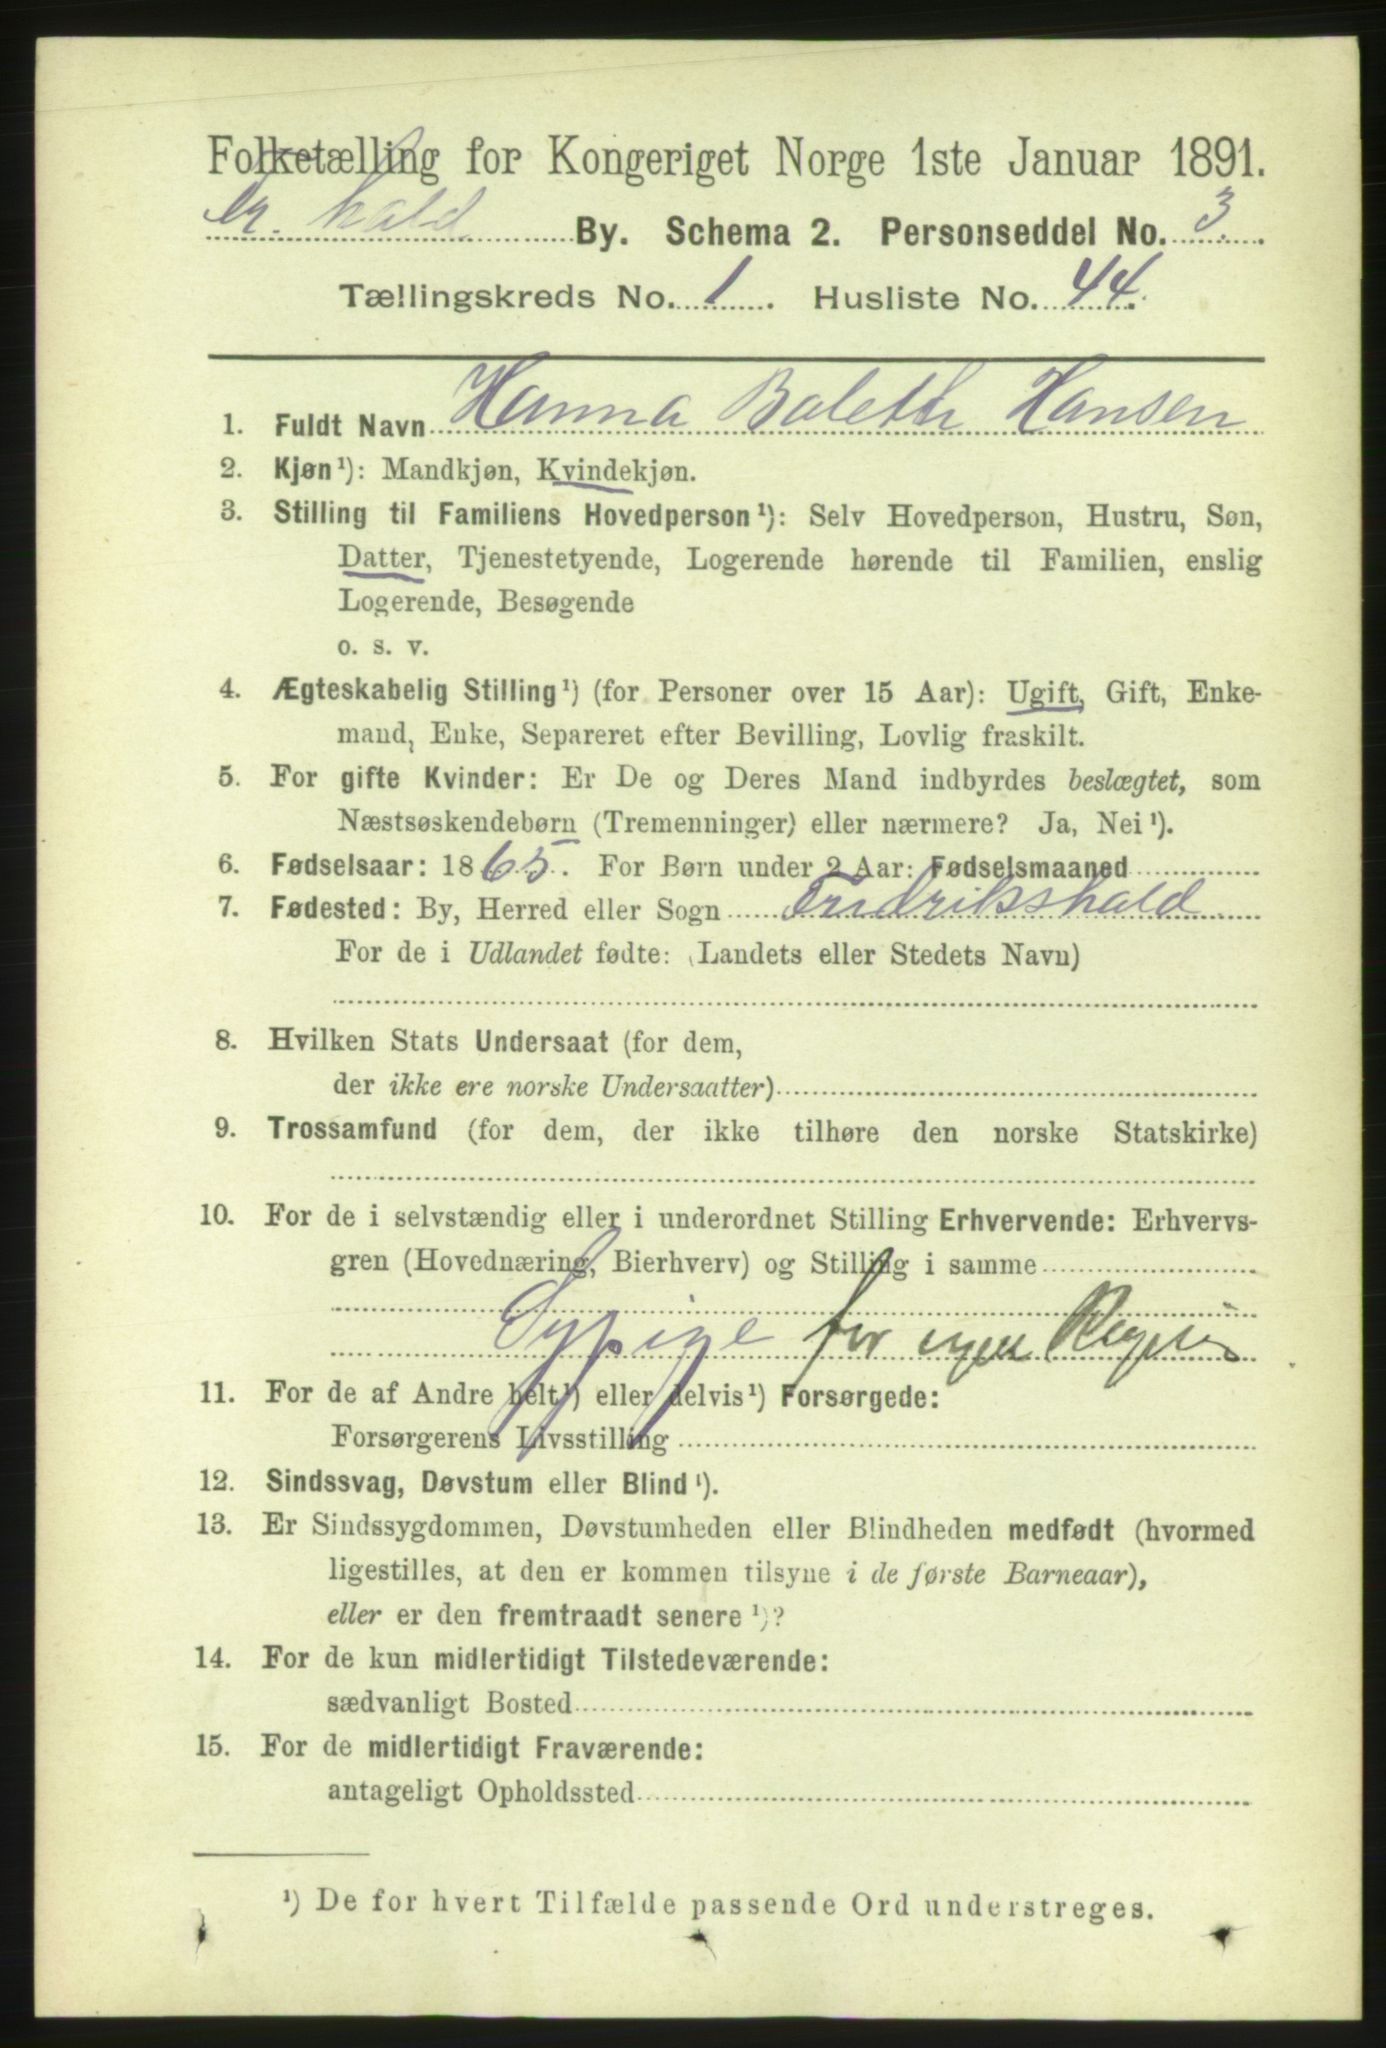 Folketælling for Kongeriget Norge 1ste Januar 1891.
Fr. hald By. Schema 2. Personseddel No. 3
Tællingskreds No. 1. Husliste No. 44.
1. Fuldt Navn Hanna Boleth Hansen
2. Kjøn¹): Mandkjøn, Kvindekjøn.
3. Stilling til Familiens Hovedperson¹): Selv Hovedperson, Hustru, Søn,
Datter, Tjenestetyende, Logerende hørende til Familien, enslig
Logerende, Besøgende
o. s. v.
4. Ægteskabelig Stilling¹) (for Personer over 15 Aar): Ugift, Gift, Enke-
mand, Enke, Separeret efter Bevilling, Lovlig fraskilt.
5. For gifte Kvinder: Er De og Deres Mand indbyrdes beslægtet, som
Næstsøskendebørn (Tremenninger) eller nærmere? Ja, Nei¹).
6. Fødselsaar: 1865. For Børn under 2 Aar: Fødselsmaaned
7. Fødested: By, Herred eller Sogn Fredrikshald
For de i Udlandet fødte: (Landets eller Stedets Navn)
8. Hvilken Stats Undersaat (for dem,
der ikke ere norske Undersaatter)
9. Trossamfund (for dem, der ikke tilhøre den norske Statskirke)
10. For de i selvstændig eller i underordnet Stilling Erhvervende: Erhvervs-
gren (Hovednæring, Bierhverv) og Stilling i samme
Sypige for egen Regn
11. For de af Andre helt¹) eller delvis¹) Forsørgede:
Forsørgerens Livsstilling
12. Sindssvag, Døvstum eller Blind¹).
13. Er Sindssygdommen, Døvstumheden eller Blindheden medfødt (hvormed
ligestilles, at den er kommen tilsyne i de første Barneaar),
eller er den fremtraadt senere¹)?
14. For de kun midlertidigt Tilstedeværende:
sædvanligt Bosted
15. For de midlertidigt Fraværende:
antageligt Opholdssted
¹) De for hvert Tilfælde passende Ord understreges.